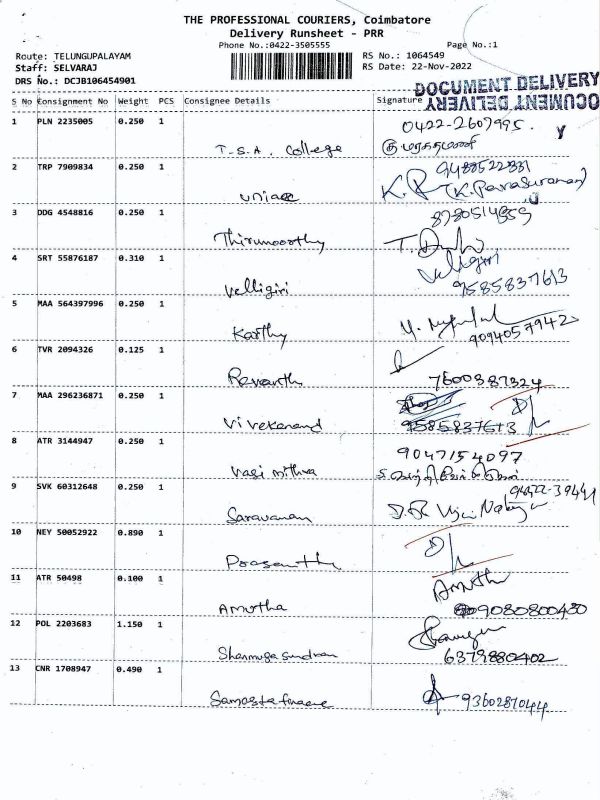 THE PROFESSIONAL COURIERS, Coimbatore
Delivery Runsheet - PRR
Phone No.:0422-3505555
Page No.:1
Route: TELUNGUPALAYAM
RS No.: 1064549
Staff: SELVARAJ
RS Date: 22-Nov-2022
DRS No.: DCJB106454901
DOCUMENT DELIVERY
DOCUMENT DELIVERY
S No Consignment No Weight PCS Consignee Details Signature
1 PLN 2235005 0.250 1 T.S.A. College 0422-2607995.
2 TRP 7909834 0.250 1 9488522331
K.P (K.Parasuraman)
3 DDG 4548816 0.250 1 Thirumoorthy
4 SRT 55876187 0.310 1 Velligiri Velligiri
9585837613
5 MAA 564397996 0.250 1 Karthy
9094057942
6 TVR 2094326 0.125 1 Revanth 7600387324
7 MAA 296236871 0.250 1 Vivekanand 9585837613
8 ATR 3144947 0.250 1 Vasi Mithra 9047154097
9 SVK 60312648 0.250 1 Saravanan
10 NEY 50052922 0.890 1 Prasanth
11 ATR 50498 0.100 1 Amutha Amutha
9080800430
12 POL 2203683 1.150 1 Shanmuga Sundram
6379880402
13 CNR 1708947 0.490 1 9360281044